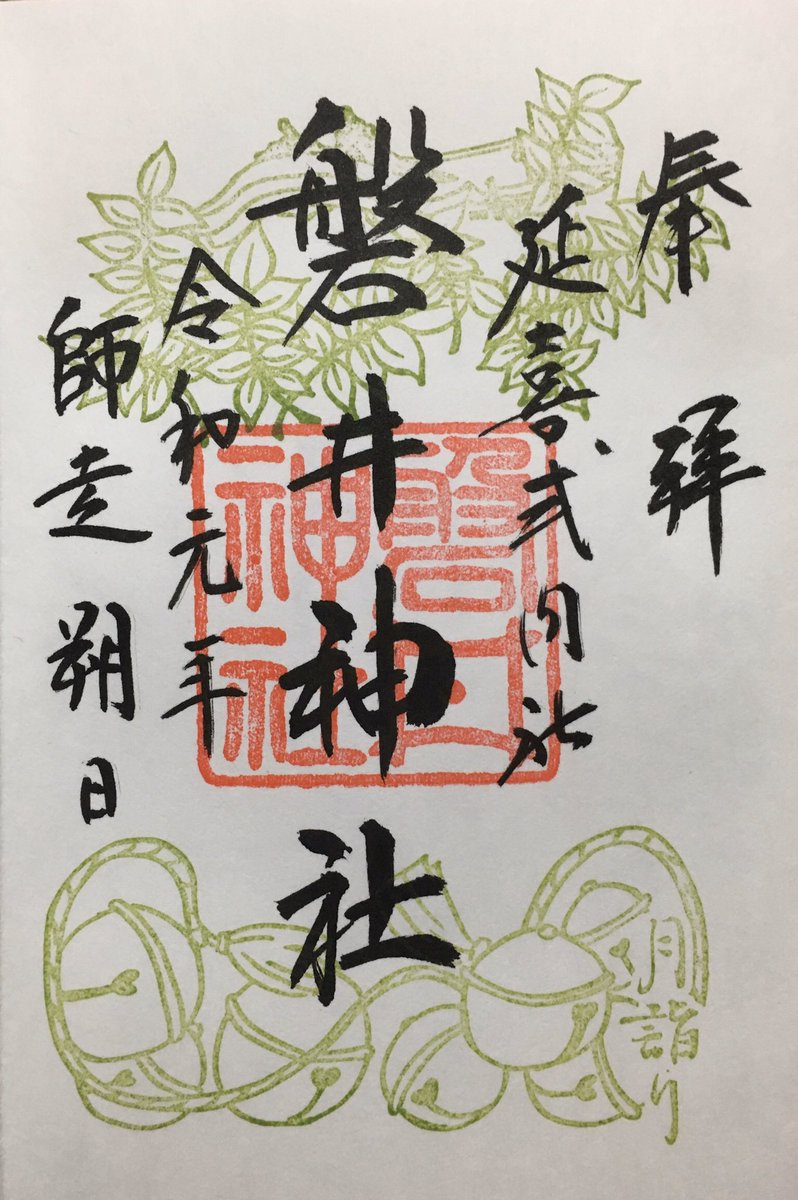 奉拝
延喜式内社
磐井神社
令和元年
師走朔日
磐井
神社
月詣り